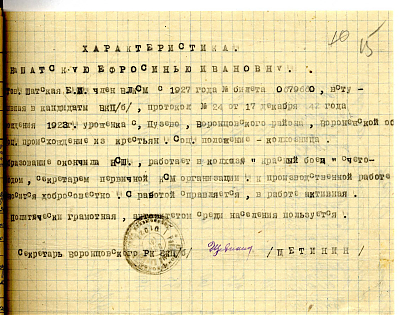 40 15
ХАРАКТЕРИСТИКА.
ШАТСКУЮ ЕФРОСИНЬЮ ИВАНОВНУ.
тов. Шатская Е.И. член ВЛКСМ с 1927 года № билета 0679660, всту-
в кандидаты ВКП/б/, протокол № 24 от 17 декабря года
1923г. уроженка с, Пузево, Воронцовского района, Воронежской об
происхождение из крестьян. Соц. положение – колхозница.
окончила НСШ., работает в колхозе "красный боец" счето-
, секретарем первичной организации. к производственной работе
добросовестно. С работой справляется, в работе активная.
политически грамотная, авторитетом среди населения пользуется.
Секретарь Воронцовского РК ВКП/б/ /ЩЕТИНИН/